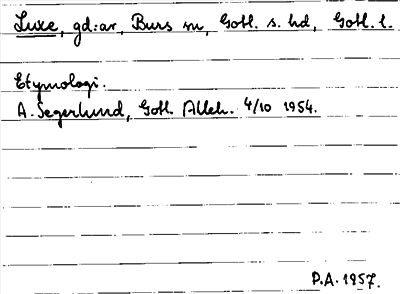 Luxe, gd:ar, Burs sn, Gotl. s. hd, Gotl. l.
Etymologi.
A. Segerlund, Gotl. Alleh. 4/10 1954.
P.A. 1957.